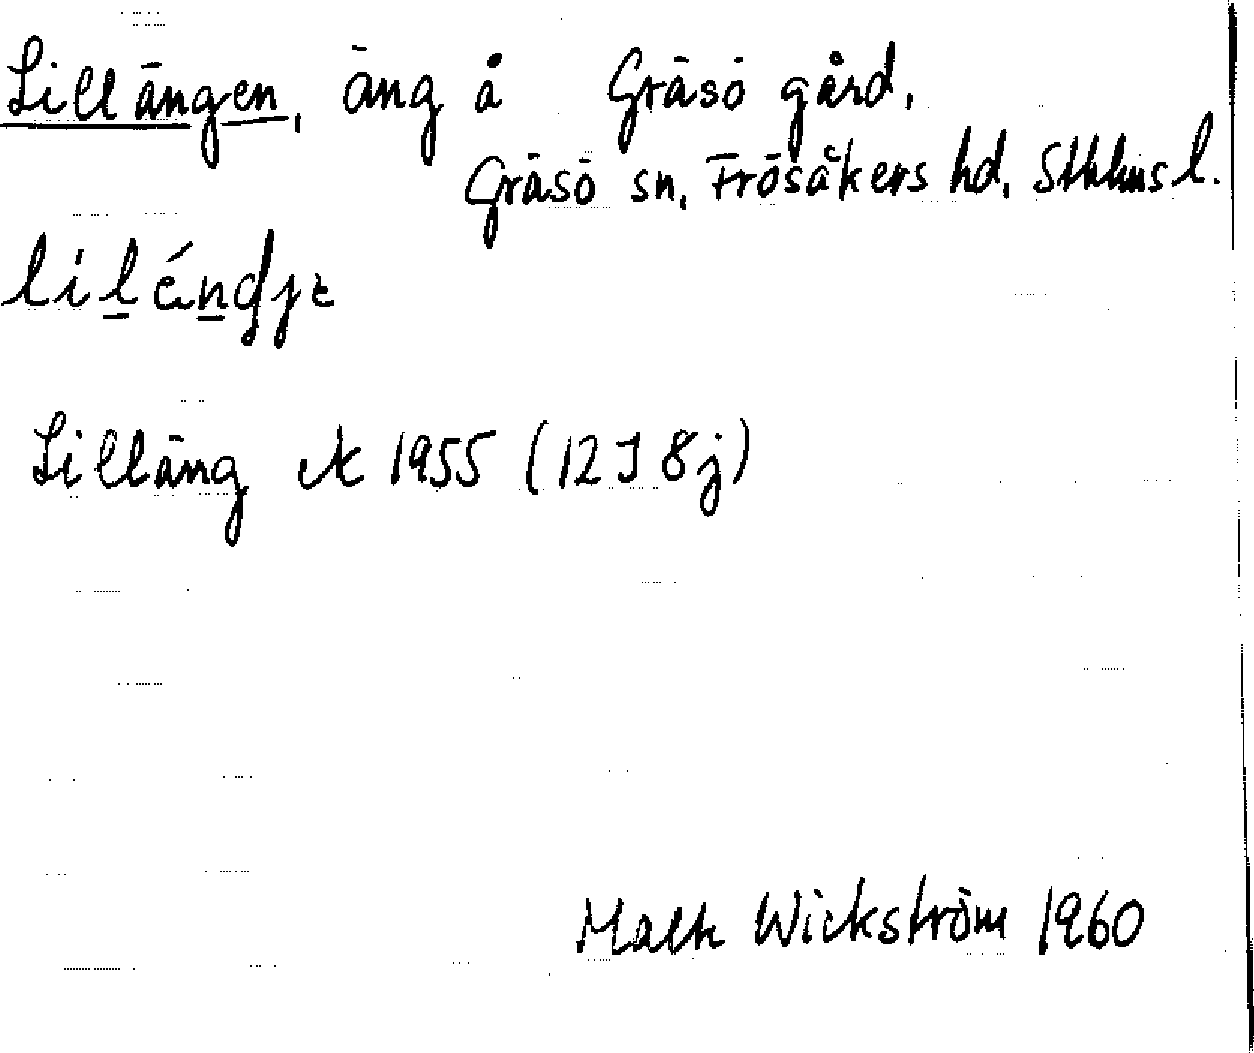 Lillängen, äng å Gräsö gård,
Gräsö sn, Frösåkers hd, Sthlms l.
liléndjɛ
Lilläng ek 1955 (12 I 8j)
Wickström 1960